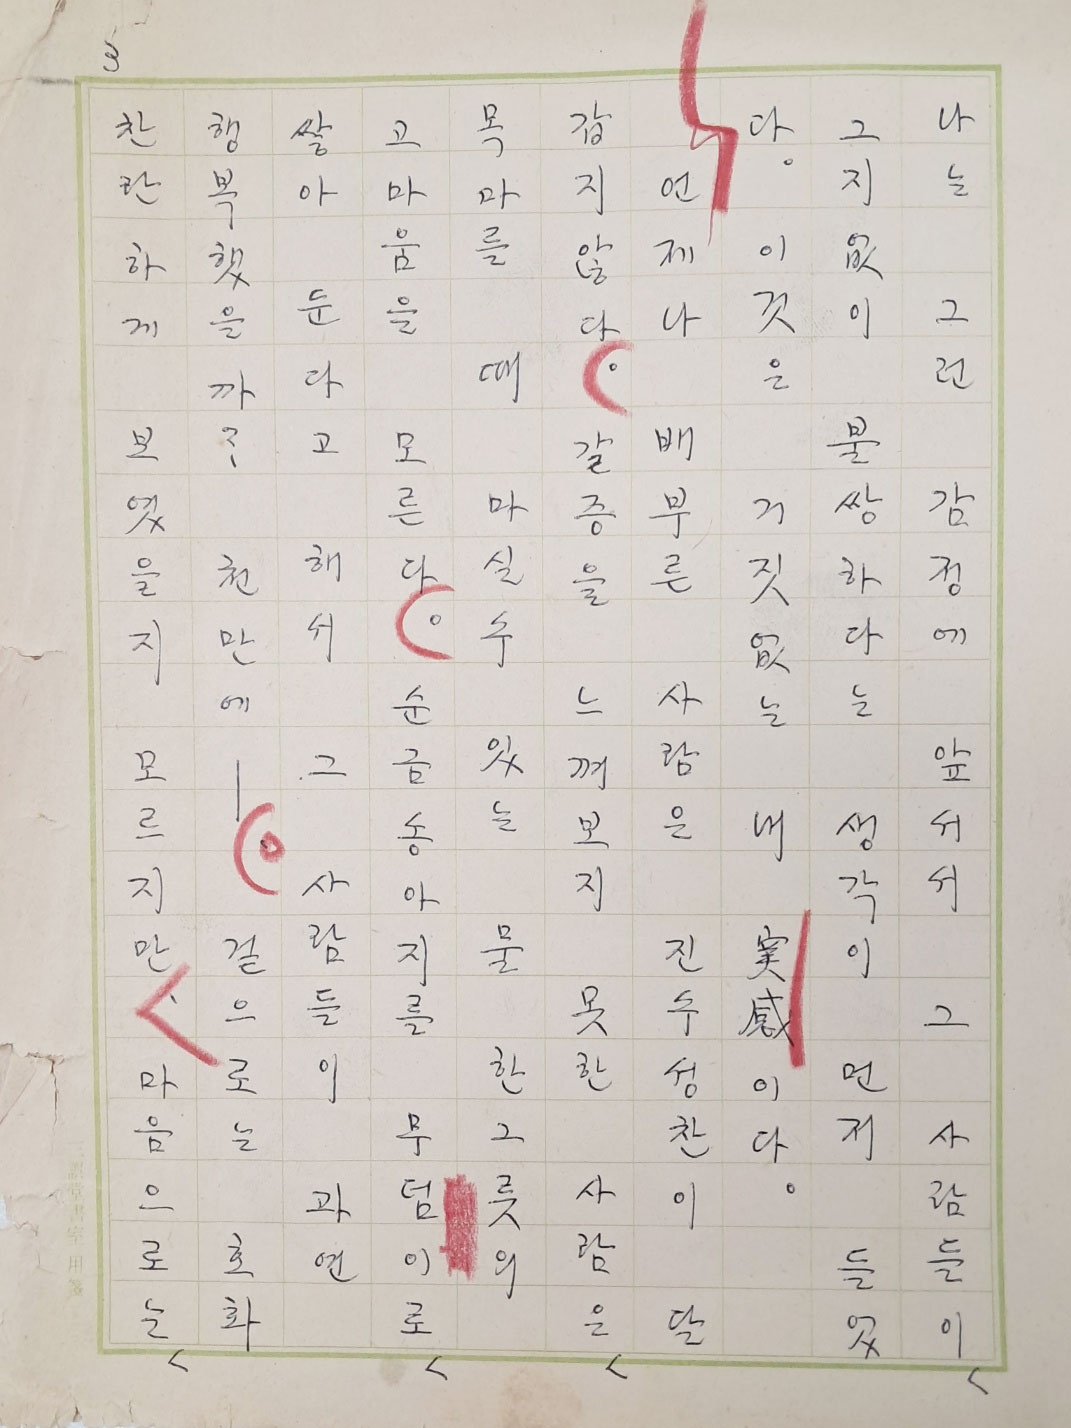 3
나는 그런 감정에 앞서서 그 사람들이
그지없이 불쌍하다는 생각이 먼저 들었
다。 이것은 거짓없는 내 実感이다。
언제나 배부른 사람은 진수성찬이 달
갑지 않다。 갈증을 느껴보지 못한 사람은
목마를 때 마실수 있는 물 한그릇의
고마움을 모른다。 순금송아지를 무덤이로
쌓아 둔다고 해서 그 사람들이 과연
행복했을까? 천만에―。 걸으로는 호화
찬란하게 보였을지 모르지만、 마음으로는